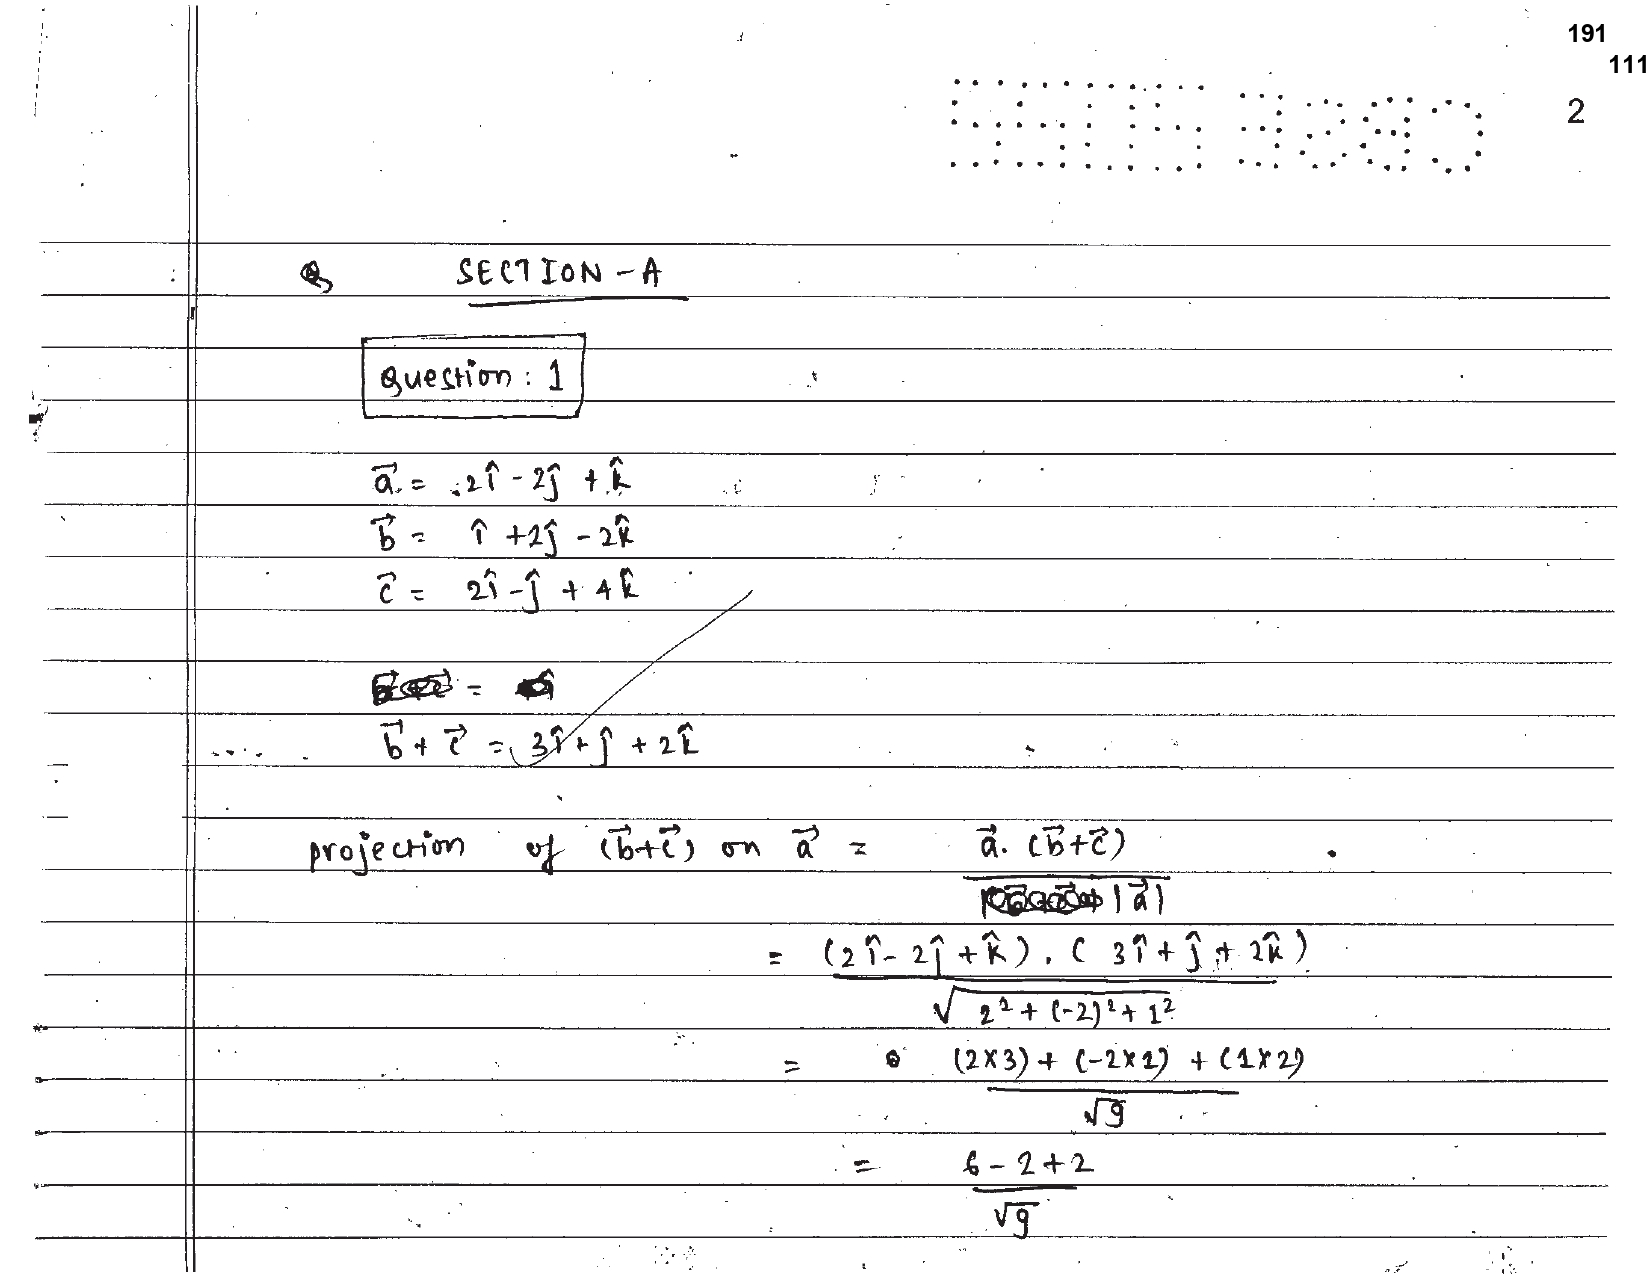 191
111
2
SECTION - A
Question : 1
a⃗ = 2î - 2ĵ + k̂
b⃗ = î + 2ĵ - 2k̂
c⃗ = 2î - ĵ + 4k̂
=
b⃗ + c⃗ = 3î + ĵ + 2k̂
projection of (b⃗+c⃗) on a⃗ = a⃗. (b⃗+c⃗)
|a⃗|
= (2î - 2ĵ + k̂) . ( 3î + ĵ + 2k̂ )
√ 2² + (-2)² + 1²
= (2×3) + (-2×1) + (1×2)
√9
= 6 - 2 + 2
√9